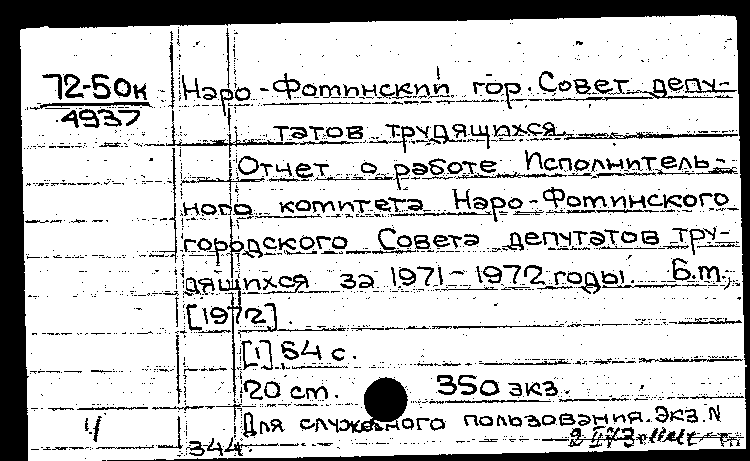 72-50к Наро-Фоминский гор. Совет депу-
4937
татов трудящихся.
Отчет о работе Исполнитель-
ного комитета Наро-Фоминского
городского Совета депутатов тру-
дящихся за 1971-1972 годы. Б.т.,
[1972].
[1] 64 с.
20 см. 350 экз.
Ч Для служебного пользования. Экз. N
344.